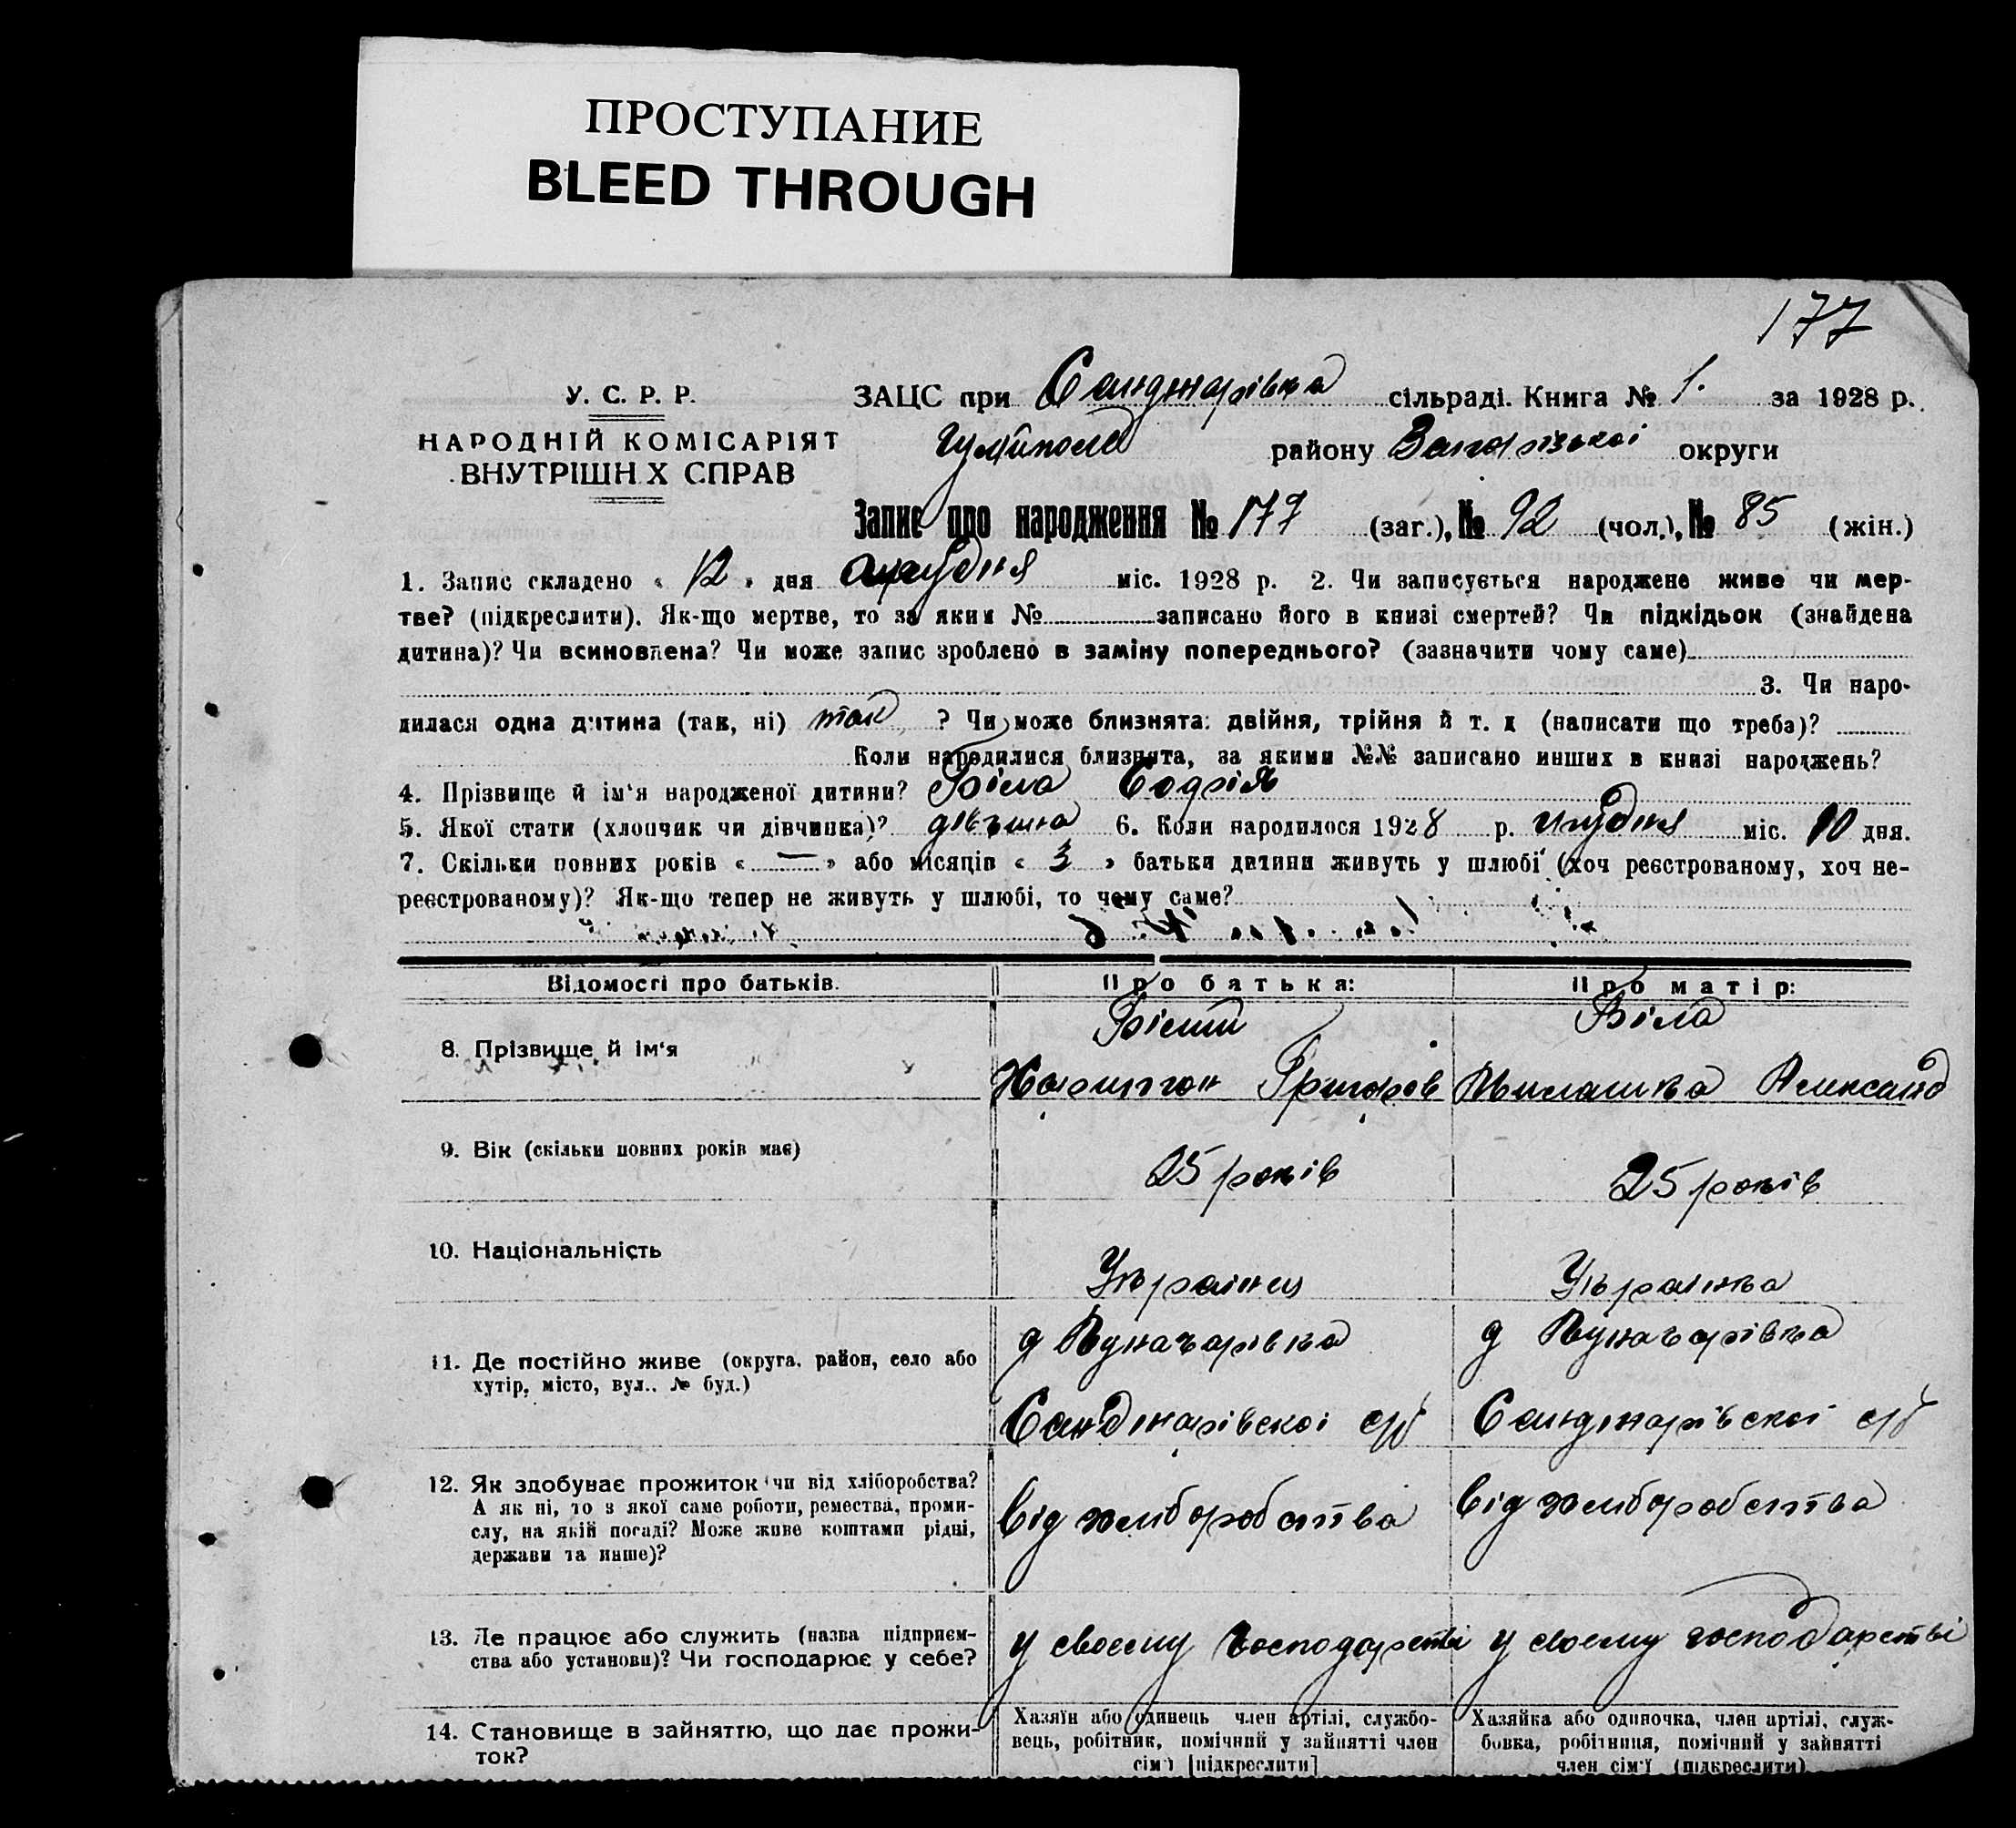 ПРОСТУПАНИЕ
BLEED THROUGH
177
У. С. Р. Р.
НАРОДНІЙ КОМІСАРІЯТ
ВНУТРІШН Х СПРАВ
ЗАЦС при Санджарівка сільраді. Книга № 1. за 1928 р.
району Запорізької округи
Запис про народження № 177 (заг.), № 92 (чол.), № 85 (жін.)
1. Запис складено « 12 » дня грудня міс. 1928 р. 2. Чи записується народжене живе чи мер-
тве? (підкреслити). Як-що мертве, то за яким № записано його в книзі смертей? Чи підкідьок (знайдена
дитина)? Чи всиновлена? Чи може запис зроблено в заміну попереднього? (зазначити чому саме)
3. Чи наро-
дилася одна дитина (так, ні) так ? Чи може близнята: двійня, трійня й т. д (написати що треба)?
Коли народилися близнята, за якими №№ записано инших в книзі народжень?
4. Прізвище й ім'я народженої дитини? Біла Софія
5. Якої статі (хлопчик чи дівчинка)? дівчина 6. Коли народилося 1928 р. грудня міс. 10 дня.
7. Скільки повних років « — » або місяців « 3 » батьки дитини живуть у шлюбі (хоч реєстрованому, хоч не-
реєстрованому)? Як-що тепер не живуть у шлюбі, то чому саме?
Відомості про батьків.
Про батька:
Про матір:
8. Прізвище й ім'я
Білий
Харитон Григоров
Біла
Александ
9. Вік (скільки повних років має)
25 років
25 років
10. Національність
Українец
Українка
11. Де постійно живе (округа, район, село або
хутір, місто, вул.. № буд.)
д Луначарівка
Санджарівскої с/р
д Луначарівка
Санджарівскої с/р
12. Як здобуває прожиток чи від хліборобства?
А як ні, то з якої саме роботи, ремества, проми-
слу, на якій посаді? Може живе коштами рідні,
держави та инше)?
від хлиборобства
від хлиборобства
13. Де працює або служить (назва підприєм-
ства або установи)? Чи господарює у себе?
у своему господарстві
у своему господарстві
14. Становище в зайняттю, що дає прожи-
ток?
Хазяїн або одинець член артілі, службо-
вець, робітник, помічний у зайнятті член
сім'ї [підкреслити]
Хазяйка або одиночка, член артілі, служ-
бовка, робітниця, помічний у зайнятті
член сім'ї (підкреслити)